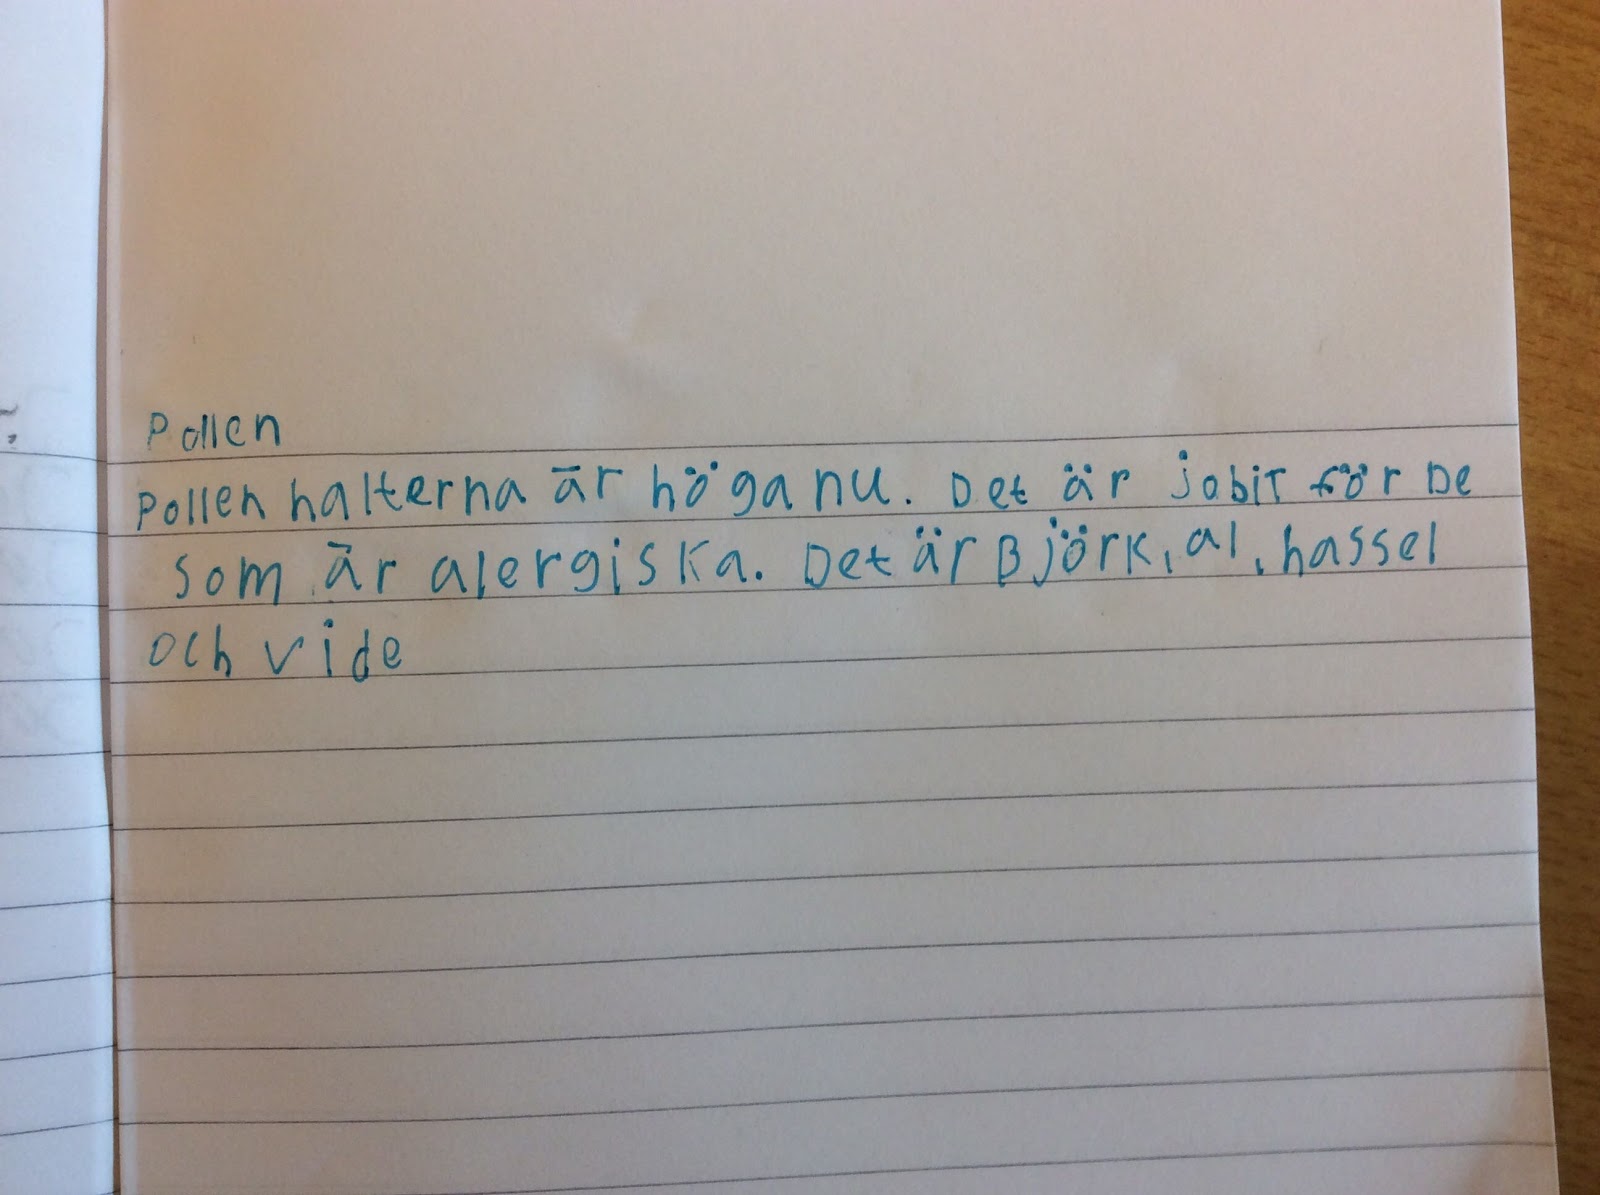 Pollen
Pollen halterna är höga nu. Det är jobit för De
som är alergiska. Det är Björk, al, hassel
och vide